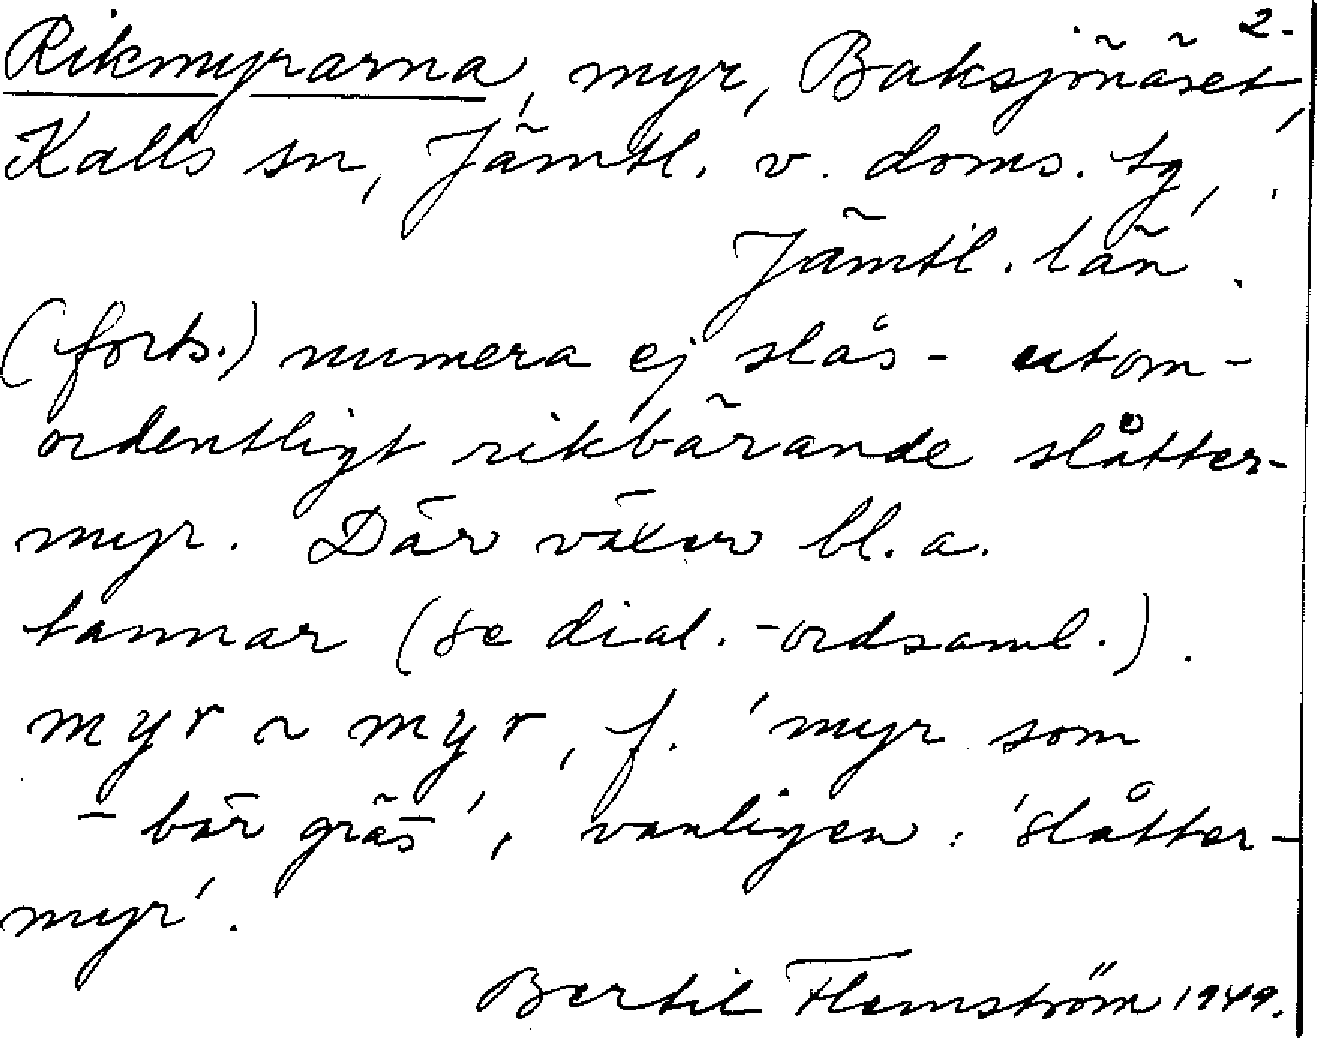 2.
Rikmyrarna, myr, Baksjönäset,
Kalls sn, Jämtl. v. doms. tg,
Jämtl. län.
(forts.) numera ej slås - utom-
ordentligt rikbärande slåtter-
myr. Där växer bl. a.
tannar (se dial.-ordsaml.).
myr ~ myr, f. 'myr som
- bär gräs', vanligen: 'slåtter-
myr'.
Bertil Flemström 1949.